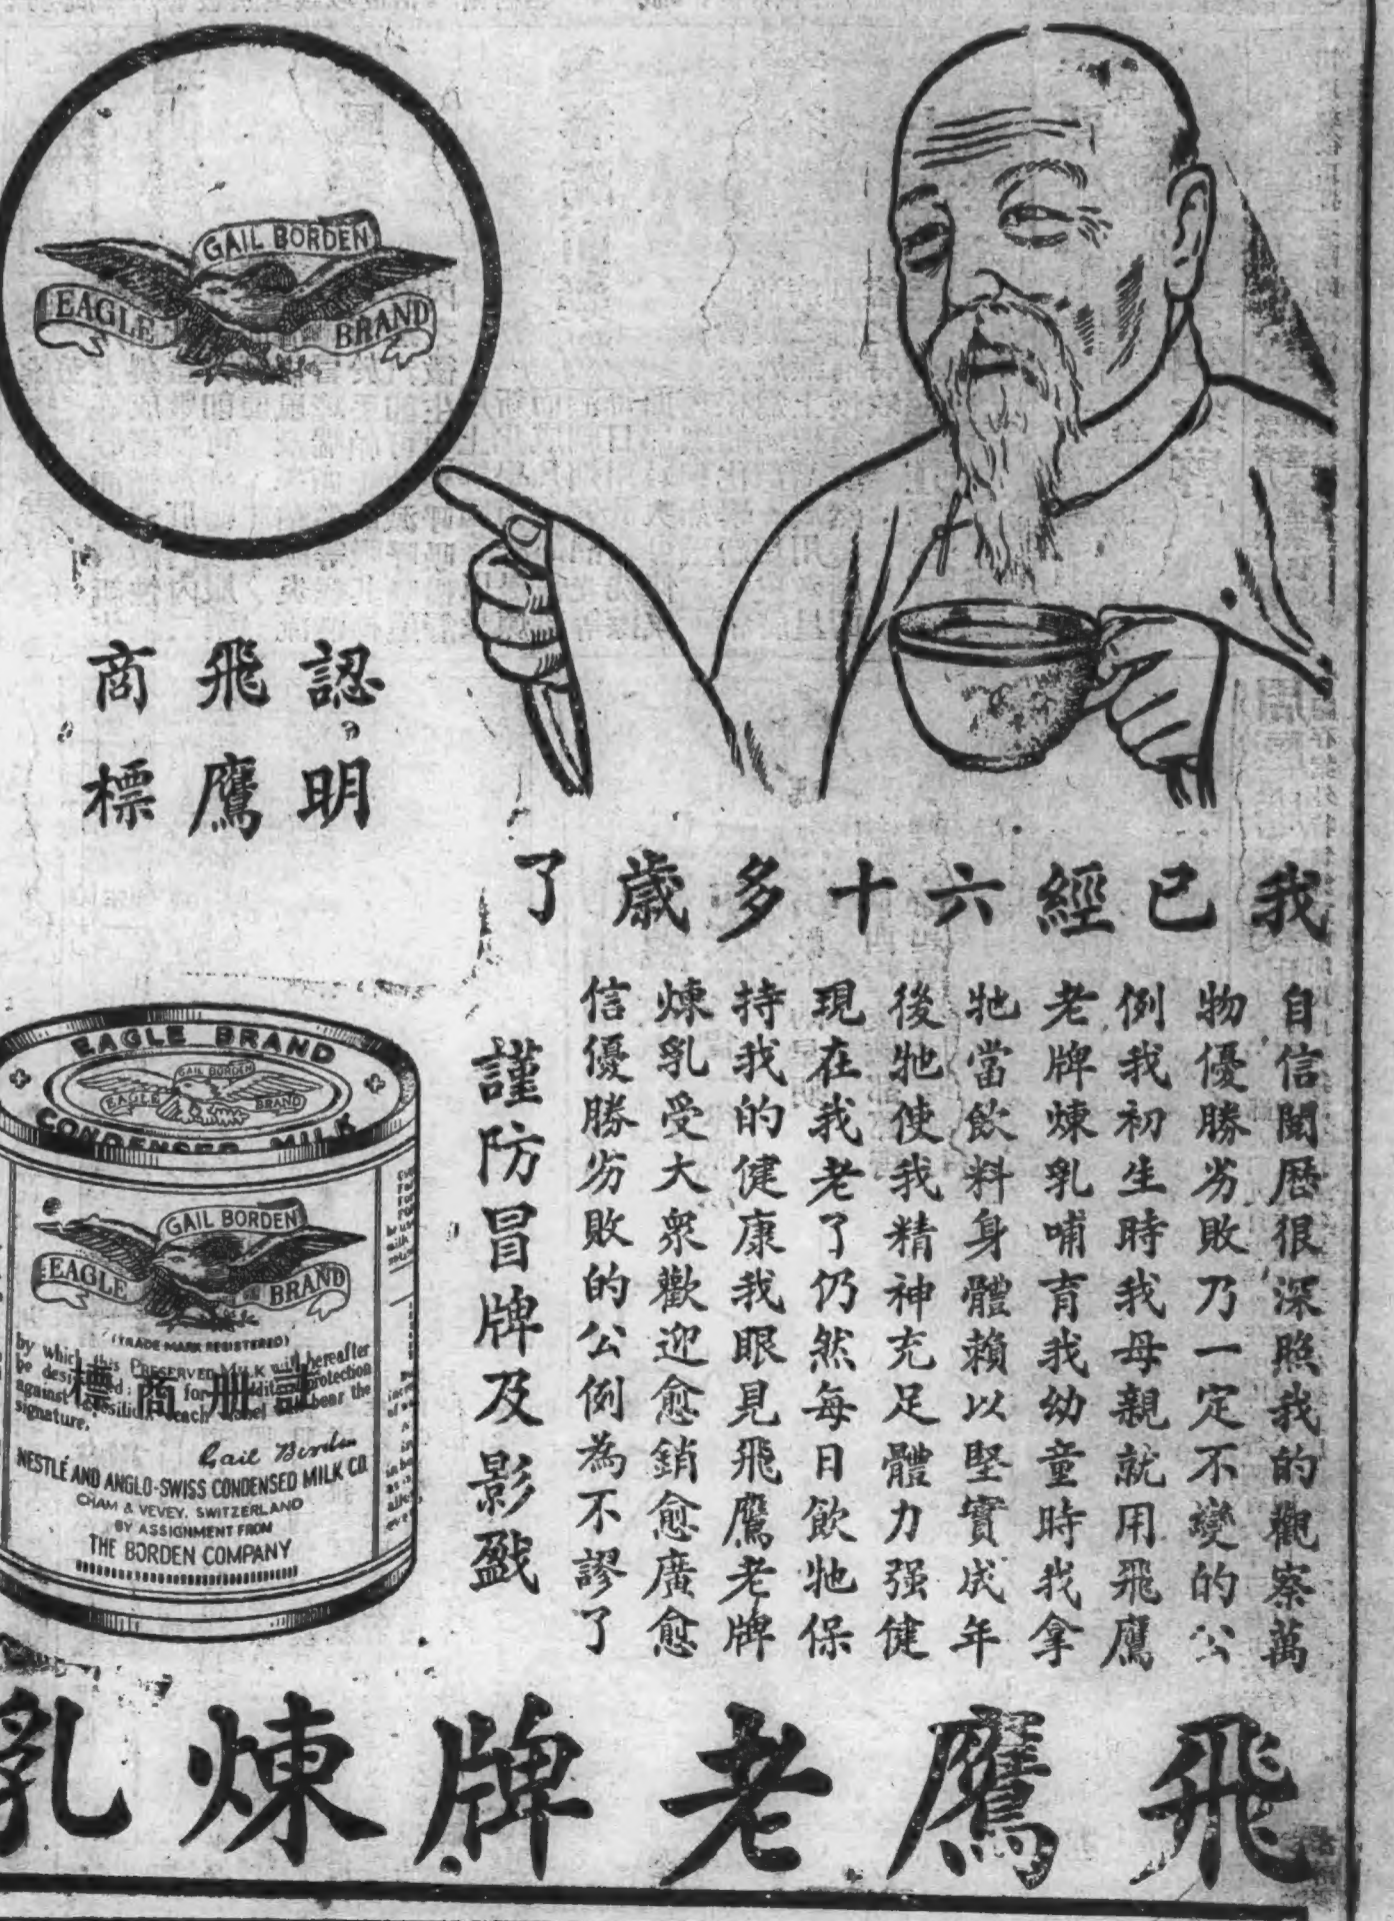 GAIL BORDEN
EAGLE BRAND
認明
飛鷹
商標
我已經六十多歲了
自信閱歷很深照我的觀察萬
物優勝劣敗乃一定不變的公
例我初生時我母親就用飛鷹
老牌煉乳哺育我幼童時我拿
牠當飲料身體賴以堅實成年
後牠使我精神充足體力强健
現在我老了仍然每日飲牠保
持我的健康我眼見飛鷹老牌
煉乳受大衆歡迎愈銷愈廣愈
信優勝劣敗的公例為不謬了
謹防冒牌及影戤
EAGLE BRAND
GAIL BORDEN
EAGLE BRAND
CONDENSED MILK
GAIL BORDEN
EAGLE BRAND
(TRADE MARK REGISTERED)
by which this PRESERVED MILK will hereafter
be for protection
against each bear the
signature.
註册商標
Gail Borden
NESTLÉ AND ANGLO-SWISS CONDENSED MILK CO.
CHAM & VEVEY, SWITZERLAND
BY ASSIGNMENT FROM
THE BORDEN COMPANY
飛鷹老牌煉乳